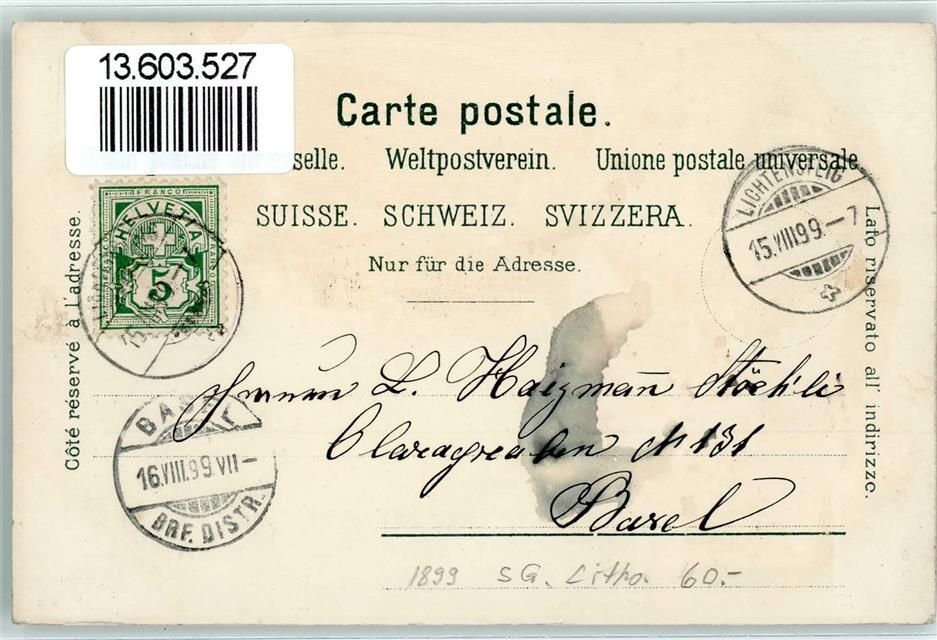 13.603.527
Carte postale.
selle. Weltpostverein. Unione postale universale
SUISSE. SCHWEIZ. SVIZZERA.
Nur für die Adresse.
Côté réservé à l'adresse.
Lato riservato all' indirizzo.
FRANCO
HELVETIA
FRANCO
5
LICHTENSTEIG
15.VIII.99.-7
L. Haizmann Stöckli
Claragraben No 131
Basel
BAS
16.VIII.99.VII-
BRF. DISTR.
1899 SG. Litho. 60.-